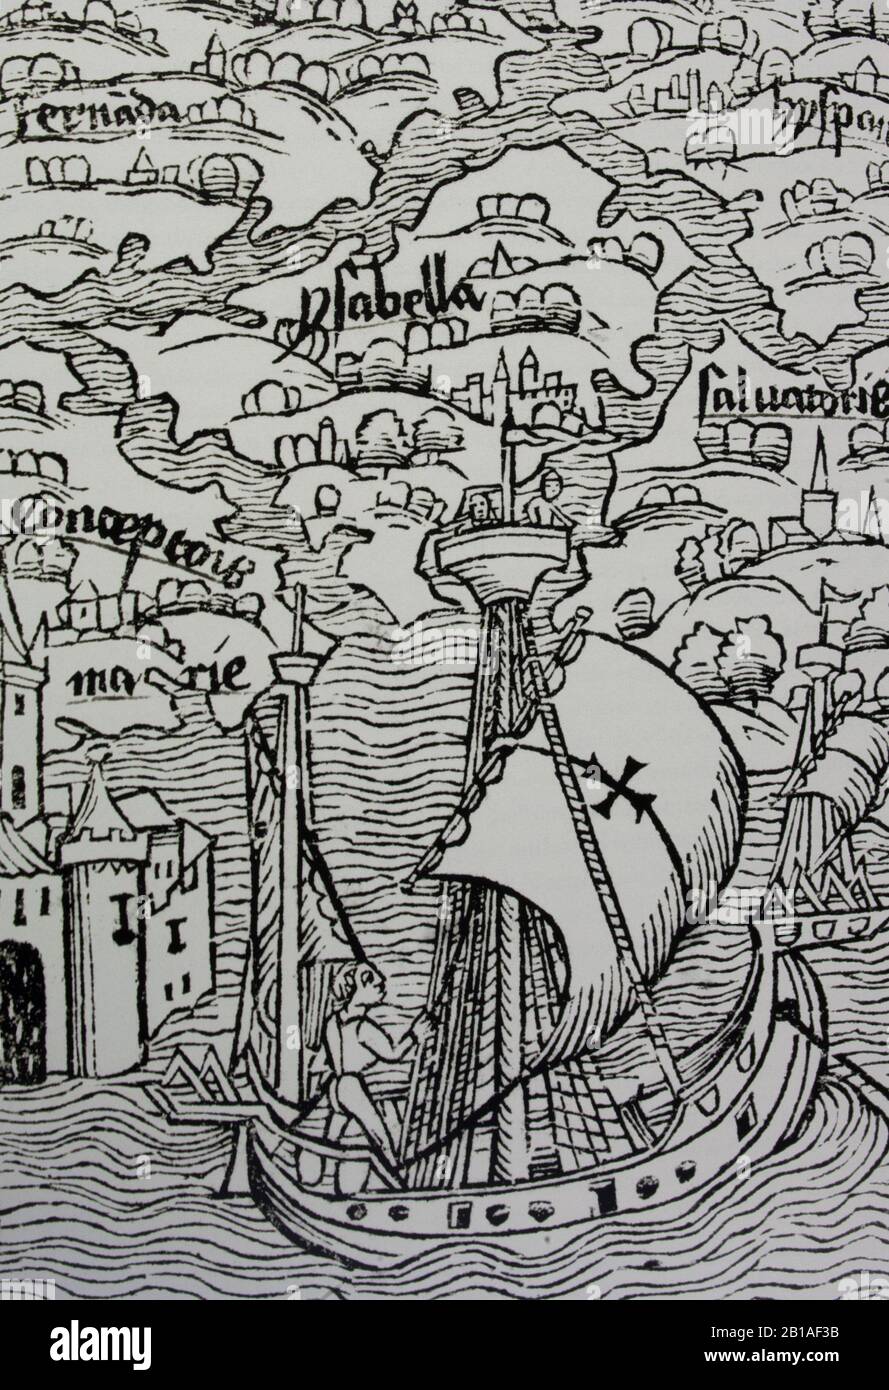 fernãda
hyspan
ysabella
saluatorie
Conceptoīs
marie
alamy
Image ID: 2B1AF3B
www.alamy.com